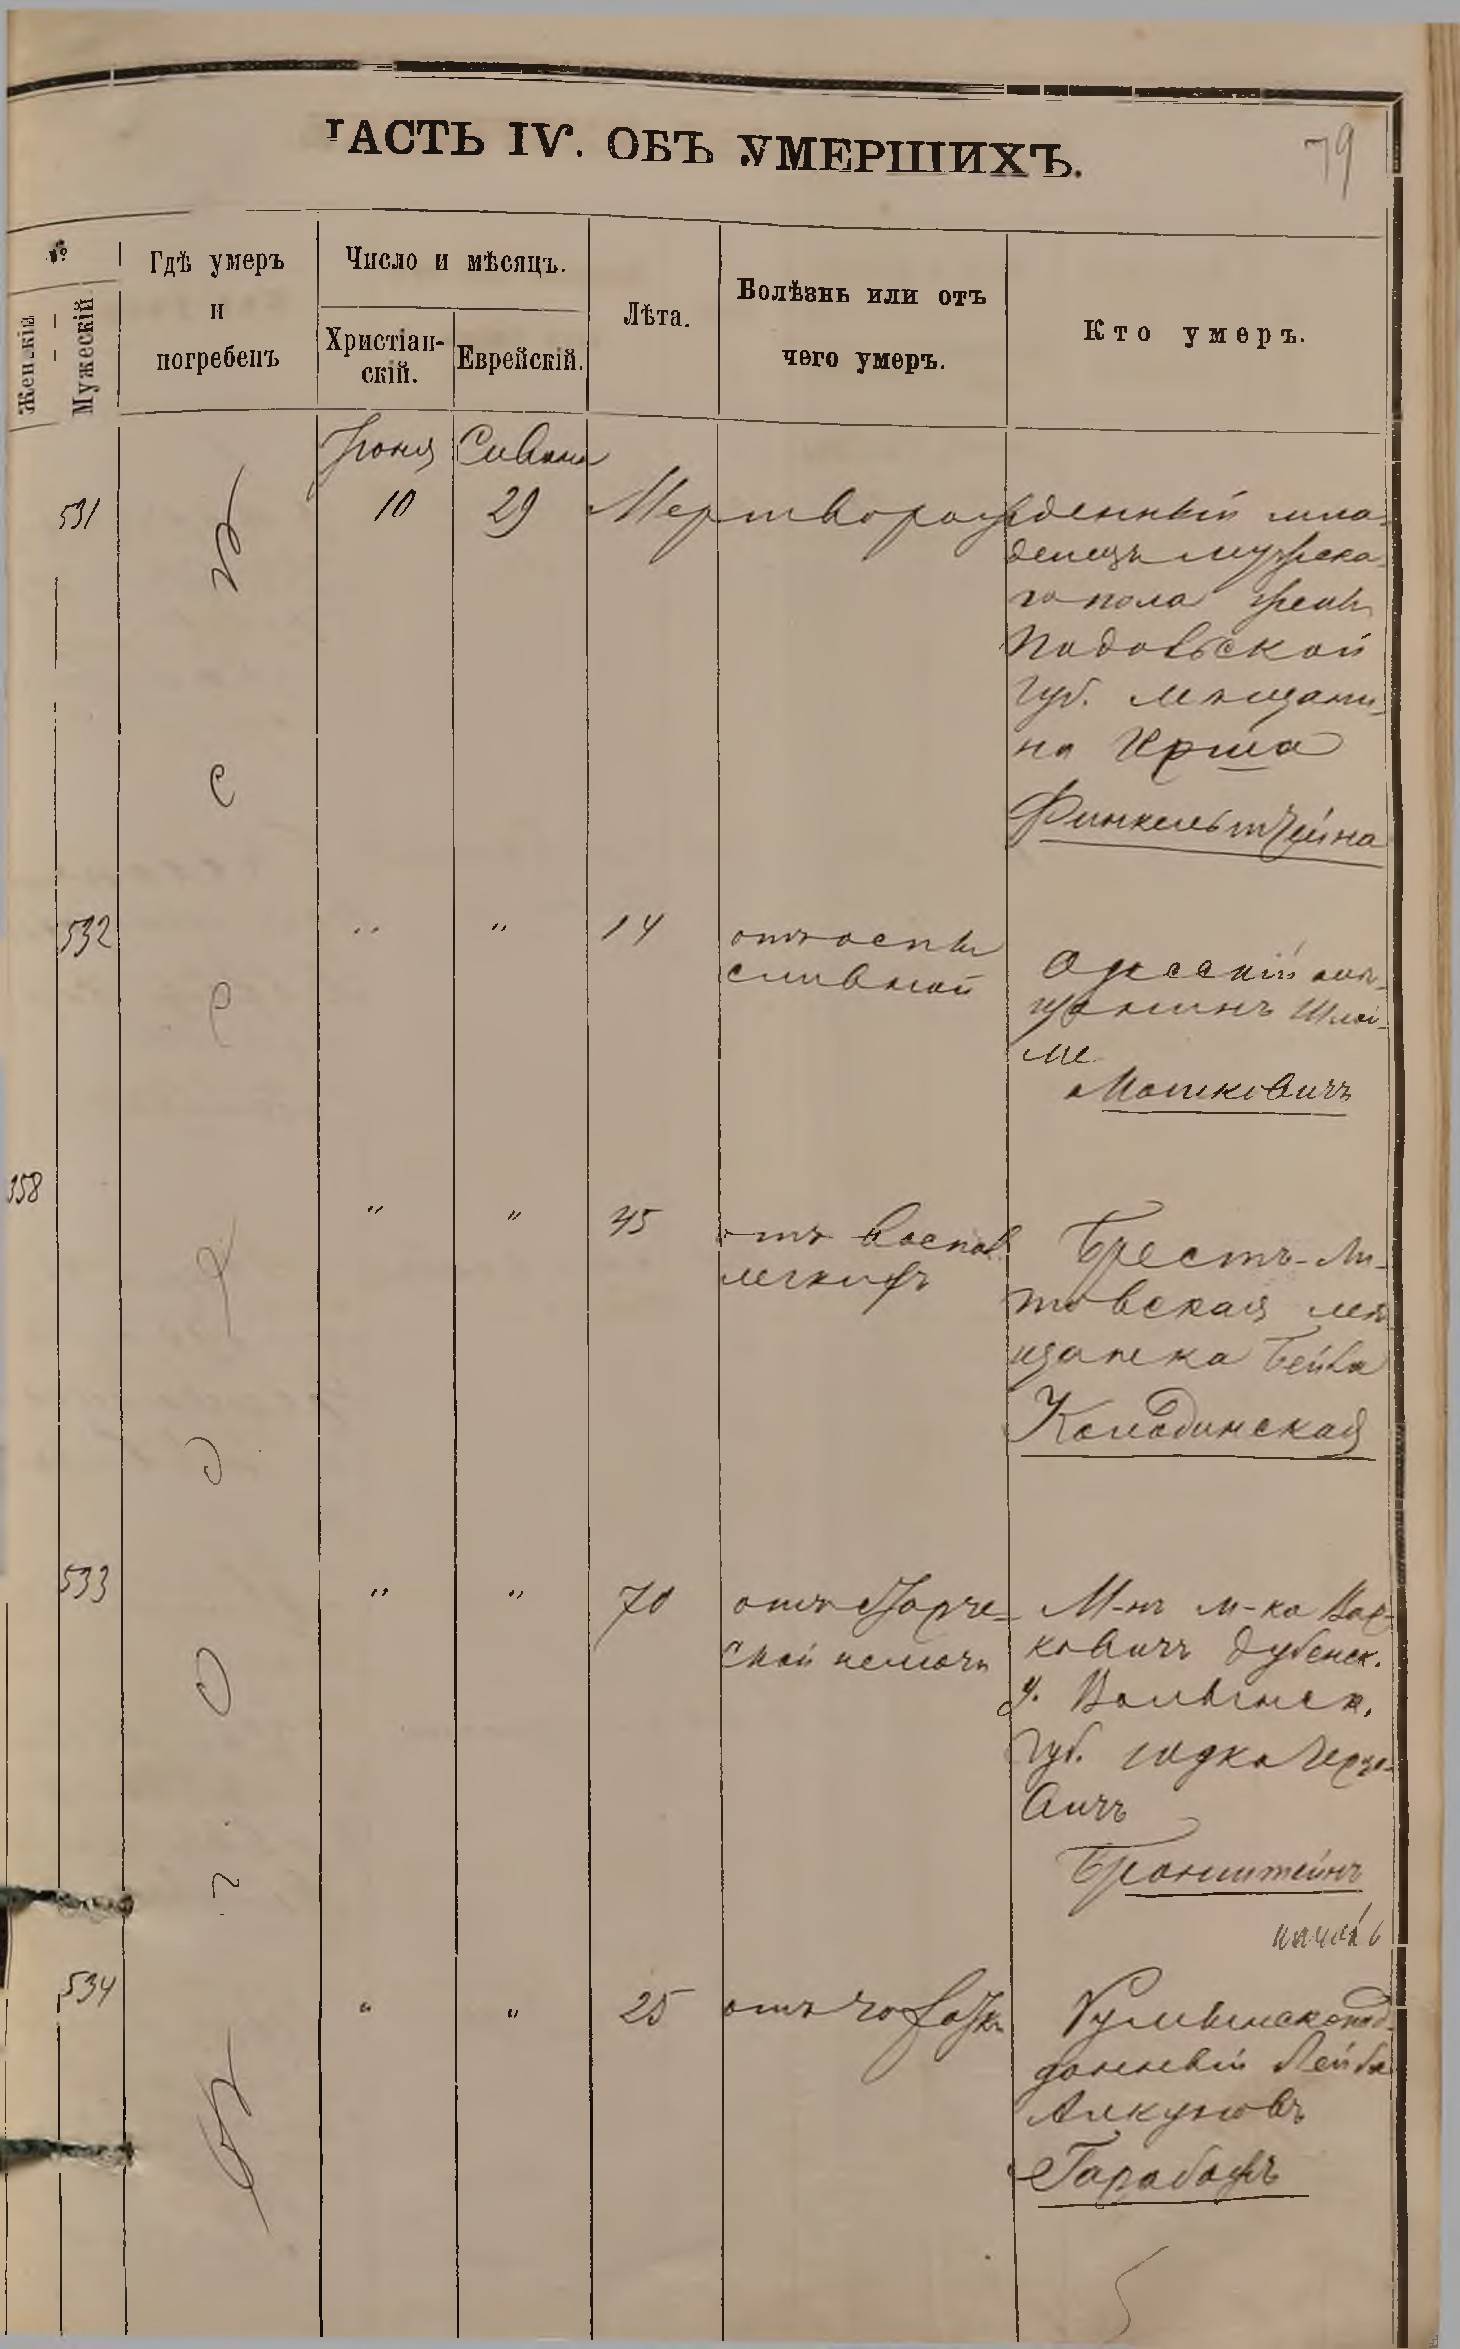 ЧАСТЬ IV. ОБЪ УМЕРШИХЪ.
79
№
Женскій
Мужескій
Гдѣ умеръ
и
погребенъ
Число и мѣсяцъ.
Христіан-
скій.
Еврейскій.
Лѣта.
Болѣзнь или отъ
чего умеръ.
Кто умеръ.
Іюня Сивана
531 10 29 Мертворожденный мла-
денецъ мужска-
го пола
Подольской
Губ. мѣщани-
на Ирша
Финкельштейна
532 " " 14 отъ оспы
сливной
Одесскій мѣ-
щанинъ Шлой-
ме
Мошковичъ
358 " " 45 отъ воспал.
легкихъ
Брестъ-Ли-
товская мѣ-
щанка Бейла
Колодинская
533 " " 70 отъ старче-
ской немочи
М-нъ м-ка Вар-
ковичъ Дубенск.
у. Волынск.
Губ. Герше-
вичъ
Бронштейнъ
534 " " 25 отъ чахотки
Румынскопод-
данный Лейба
Алкуновъ
Гарабахъ
Въ
Одессѣ